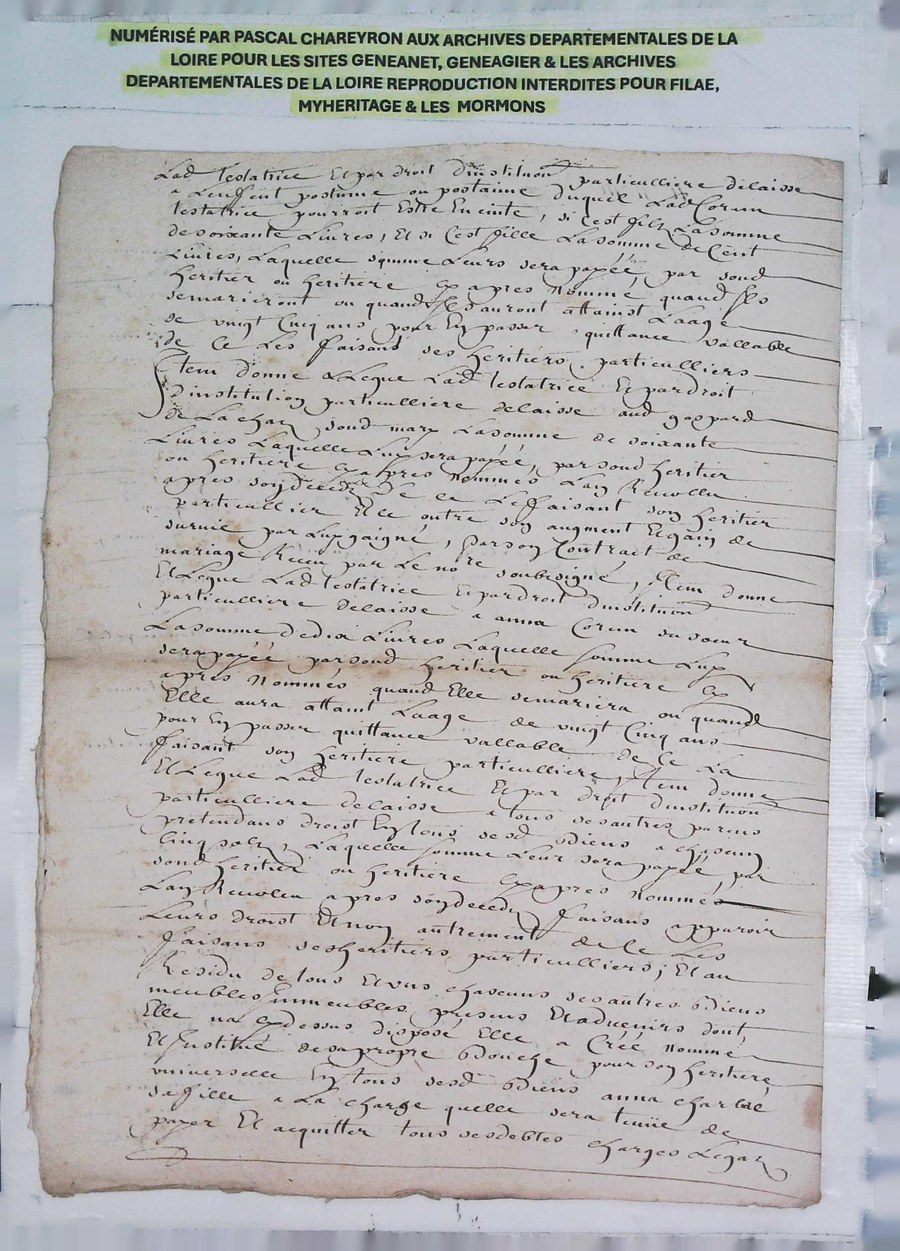 NUMÉRISÉ PAR PASCAL CHAREYRON AUX ARCHIVES DEPARTEMENTALES DE LA
LOIRE POUR LES SITES GENEANET, GENEAGIER & LES ARCHIVES
DEPARTEMENTALES DE LA LOIRE REPRODUCTION INTERDITES POUR FILAE,
MYHERITAGE & LES MORMONS
Lad testatrice Et par droit dinstitution particulliere delaisse
a Lenffent postume ou postume duquel Lad Corun
testatrice pourroit Estre Enceinte, si cest filz La somme
de soixante Livres, Et si cest fille La somme de Cent
Livres, Laquelle somme Leurs sera payée, par sond
heritier ou heritiere Cy apres Nommé quand Ils
semarieront ou quand Ils auront attaint Laage
de vingt Cinq ans pour En passer quittance vallable
de Ce Les faisant ses heritiers particulliers
Item donne & Legue Lad testatrice Et par droit
dinstitution particulliere delaisse aud gaspard
de La char sond mary La somme de soixante
Livres Laquelle Luy sera payée, par sond heritier
ou heritiere Cy apres Nommés Lan Revollu
apres son deceds de Ce Le faisant son heritier
particullier Et Ce outre son augment Et gain de
survie par Luy gaigné, par son Contract de
mariage Receu par Le nore soubsigné, Item donne
Et Legue Lad testatrice Et par droit dinstitution
particulliere delaisse a anna Corun sa soeur
La somme de dix Livres Laquelle somme Luy
sera payée par sond heritier ou heritiere Cy
apres Nommés quand Elle semariera ou quand
Elle aura attaint Laage de vingt Cinq ans
pour En passer quittance vallable de Ce La
faisant son heritiere particulliere, Item donne
Et Legue Lad testatrice Et par droit dinstitution
particulliere delaisse a tous ses autres parens
pretendans droist En tous sesd Biens a chascun
Cinq solz, Laquelle somme Leur sera payée, par
sond heritier ou heritiere Cy apres Nommés
Lan Revolu apres son decedz faisans apparoir
Leurs droist Et non autrement de Ce Les
faisans ses heritiers particulliers; Et au
Residu de tous Et uns chascuns ses autres Biens
meubles immeubles presens Et advenirs dont
Elle na Cy dessus disposé Elle a Créé Nommé
Et Institué de sa propre Bouche pour son heritiere
universelle En tous sesd Biens anna
sa fille a La charge quelle sera tenüe de
payer Et acquitter tous ses debtes charges Legaz